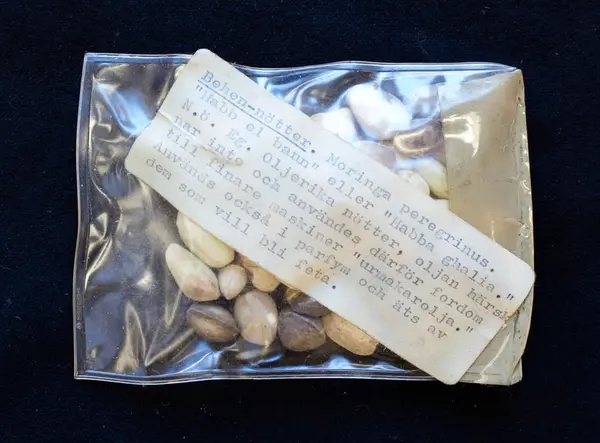 Behen-nötter. Moringa peregrinus.
"Habb el bann" eller "Habba ghalia."
N.ö. Eg. Oljerika nötter, oljan härsk
nar inte och användes därför fordom
till finare maskiner "urmakarolja."
Används också i parfym och äts av
dem som vill bli feta.